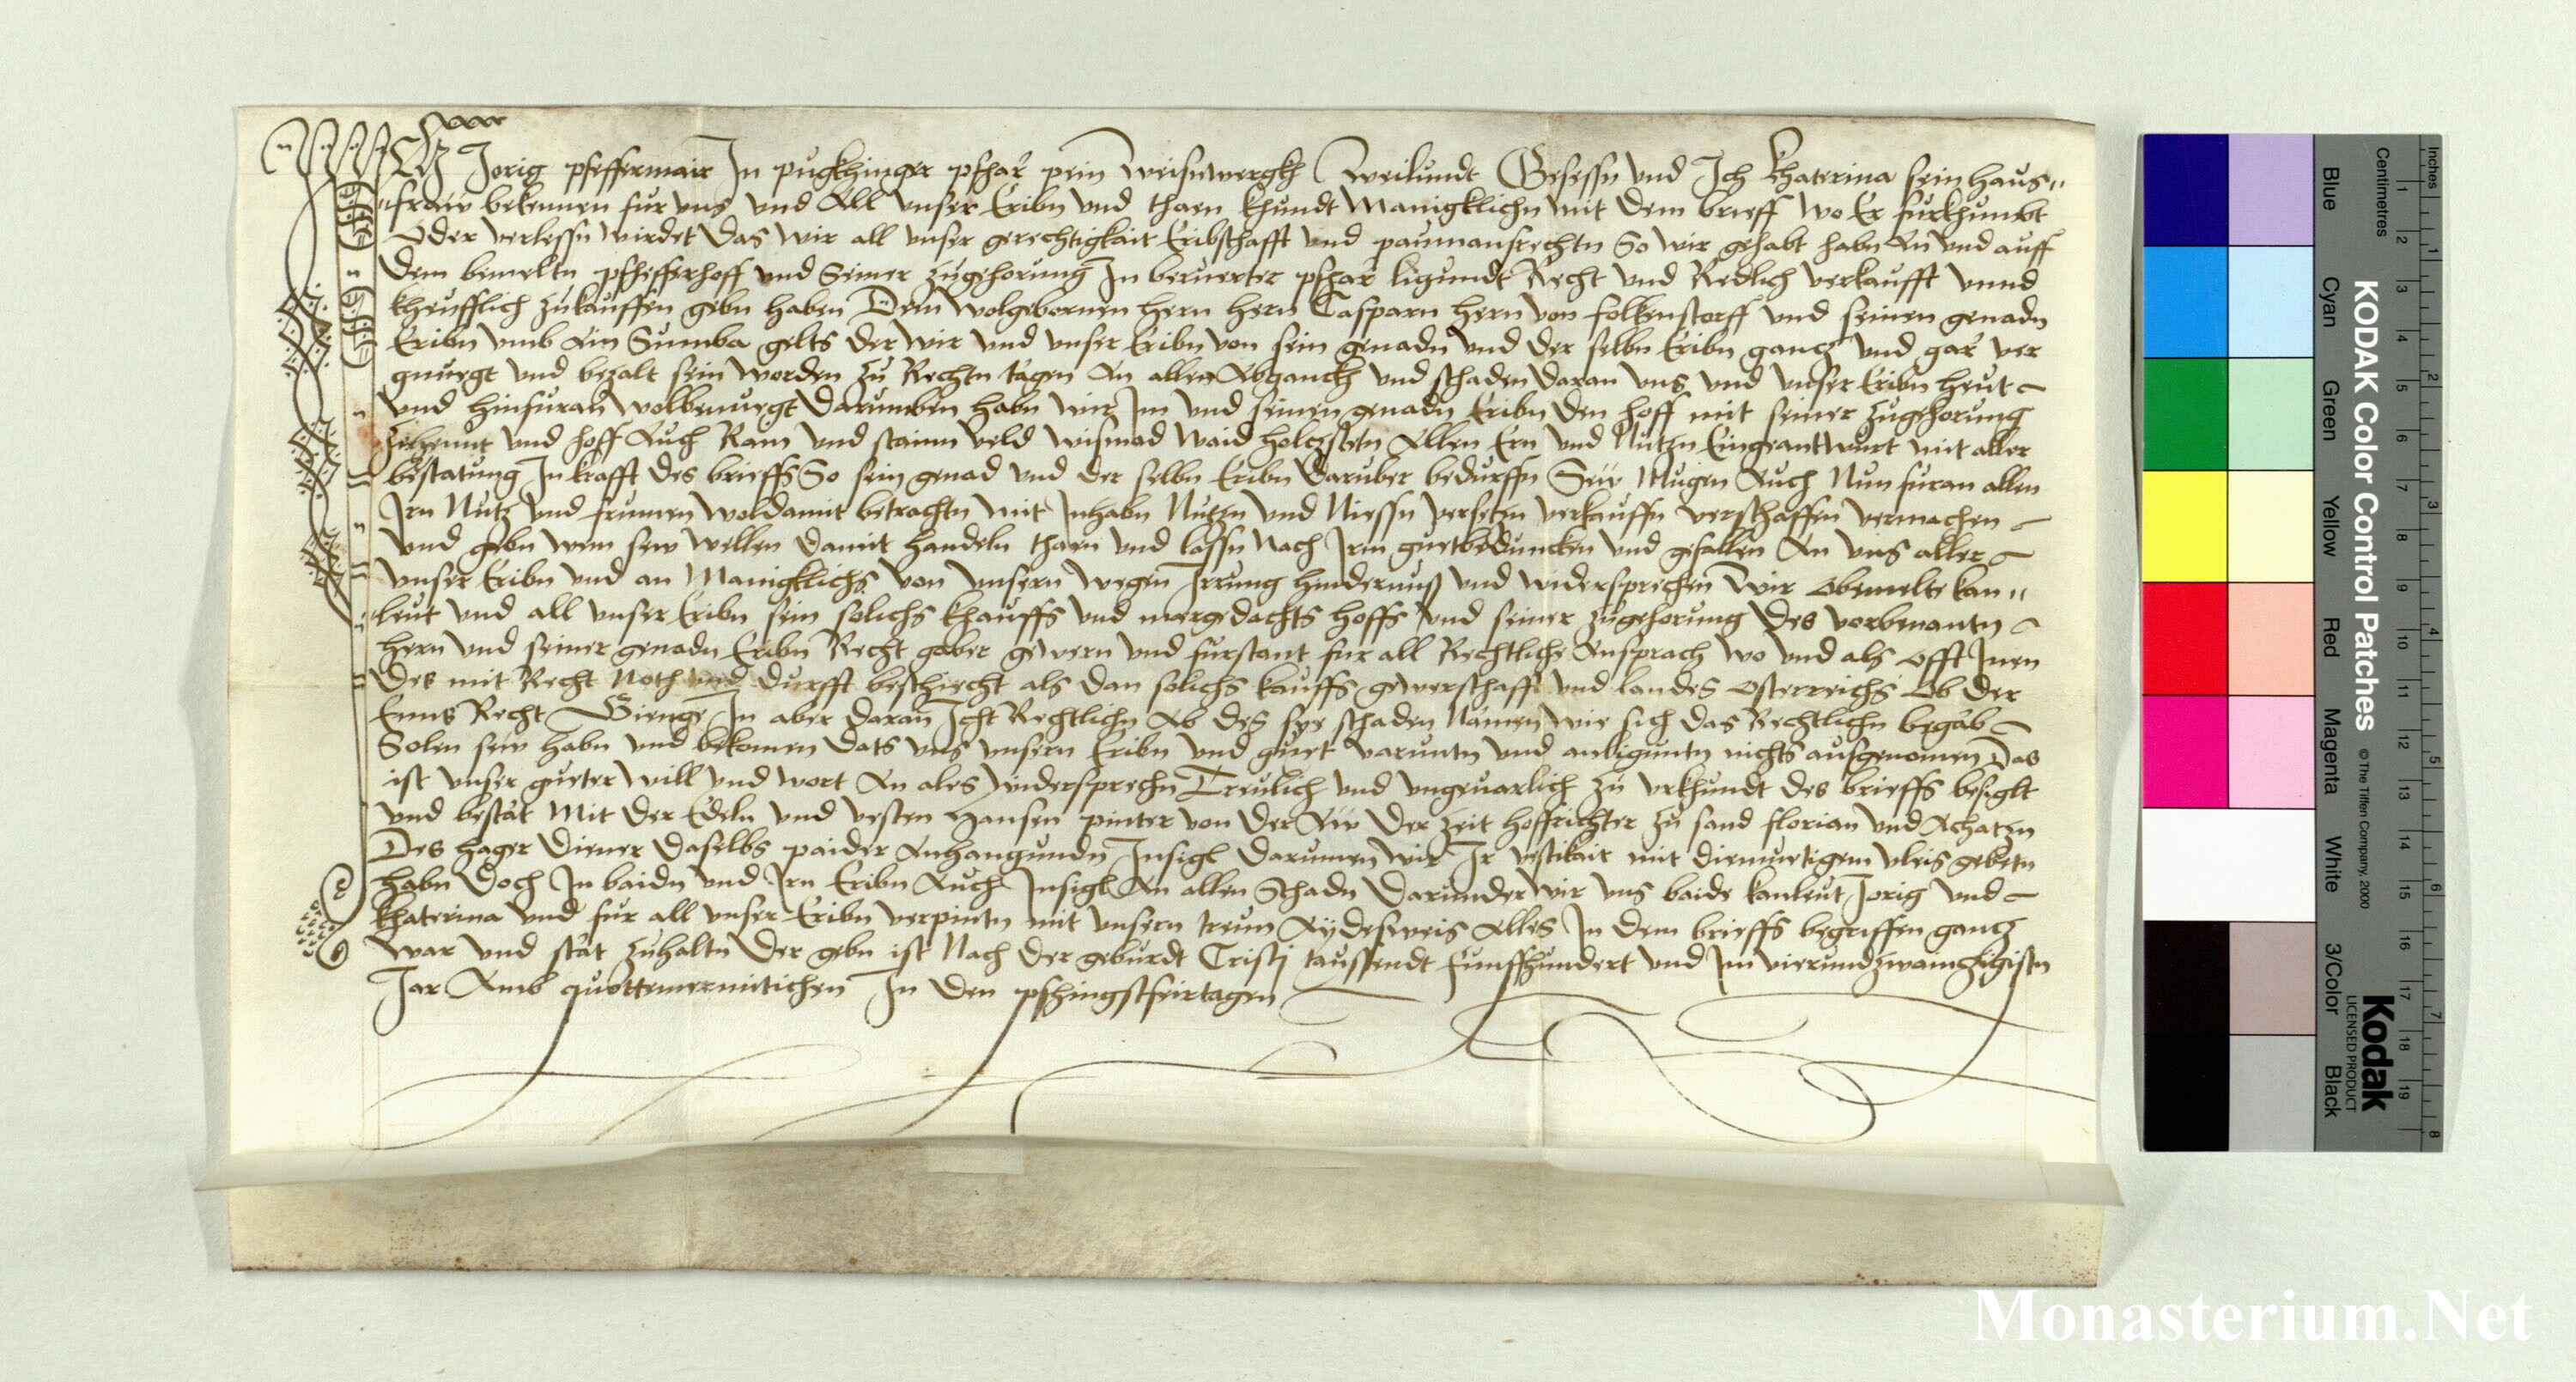 Ich Jorig pfeffermair In pugkhinger pfhar peim Weisnwergkh Weilundt Gesessn und Ich Khaterina sein haus„
„fraw bekennen fur uns und All unser Eribn und thuen khundt Manigklichn mit dem brieff wo Er furkhumbt
Oder verlessn wirdet Das wir all unser gerechtigkait Eribschafft und paumansrechtn So wir gehabt habn An und auff
Dem bemeltn pfhefferhoff und Seiner zugehorung In beruerter pfhar ligundt Recht und Redlich verkaufft unnd
kheufflich zukauffen gebn haben Dem Wolgebornen hern hern Casparn hern von folkenstorff und seinen genadn
Eribn umb Ain Summa gelts Der wir und unser Eribn von sein genadn und der selbn Eribn gancz und gar ver
gnuegt und bezalt sein worden zu Rechtn tagen An allen Abganckh und schaden daran uns und unser Eribn heut
und hinfuran wolbenuegt Darumben habn wir Im und seinen genadn Eribn den hoff mit seiner zugehorung
und hoff Auch Rain und stainn veld wismad waid holczstetn Allen Ern und Nutzn Eingeantwurt mit aller
bestatung In krafft des brieffs So sein genad und der selbn Eribn daruber bedurffn Sew Mugen Auch Nun furan allen
Irn Nutz und frumen woldamit betrachtn mit Inhabn Nutzn und Niessn versetzn verkauffn verschaffen vermachen
und gebn wem sew wellen damit handeln thuen und lassn Nach Irm guetbeduncken und gefallen An uns aller
unser Eribn und an Manigklichs von unsern wegen Irrung hindernuss und widersprechen Wir obemelte kan„
„leut und all unser Eribn sein solichs khauffs und mergedachts hoffs und seiner zugehorung des vorbenantn
hern und seiner genadn Eribn Recht geber gewern und furstant fur all Rechtliche Ansprach wo und als offt Inen
Des mit Recht Noth und durfft beschiecht als dan solichs kauffs gewerschafft und landes osterreichs Ob der
Enns Recht Gienge In aber daran Icht Rechtlichn Ab des sye schaden Namen wie sich das Rechtlichn begab
Solen sew habn und bekomen dats uns unsern Eribn und guet varuntn und anliguntn nichts ausgenomen Das
ist unser gueter will und wort An ales widersprechn Treulich und ungevarlich zu urkhundt des brieffs besiglt
und bestat Mit der Edeln und vesten Hansen pinter von der Aw der zeit hoffrichter zu sand florian und Achatzn
Des hager diener daselbs paider Anhangundn Insigl darumen wir Ir vestikait mit diemuetigem vleis gebetn
habn doch In baidn und Irn Eribn Auch Insigl An allen Schadn darunder wir uns baide kanleut Jorig und
khaterina und fur all unser Eribn verpintn mit unsern treun Aydesweis Alles In dem brieffs begriffen gancz
war und stat zuhaltn Der gebn ist Nach der geburdt Cristj taussendt funffhundert und Im vierundzwainzigistn
Jar Amb quottemermitichen In den pfhingstfeirtagen
KODAK Color Control Patches
© The Tiffen Company, 2000
Kodak
LICENSED PRODUCT
Inches
Centimetres
Blue
Cyan
Green
Yellow
Red
Magenta
White
3/Color
Black
Monasterium.Net